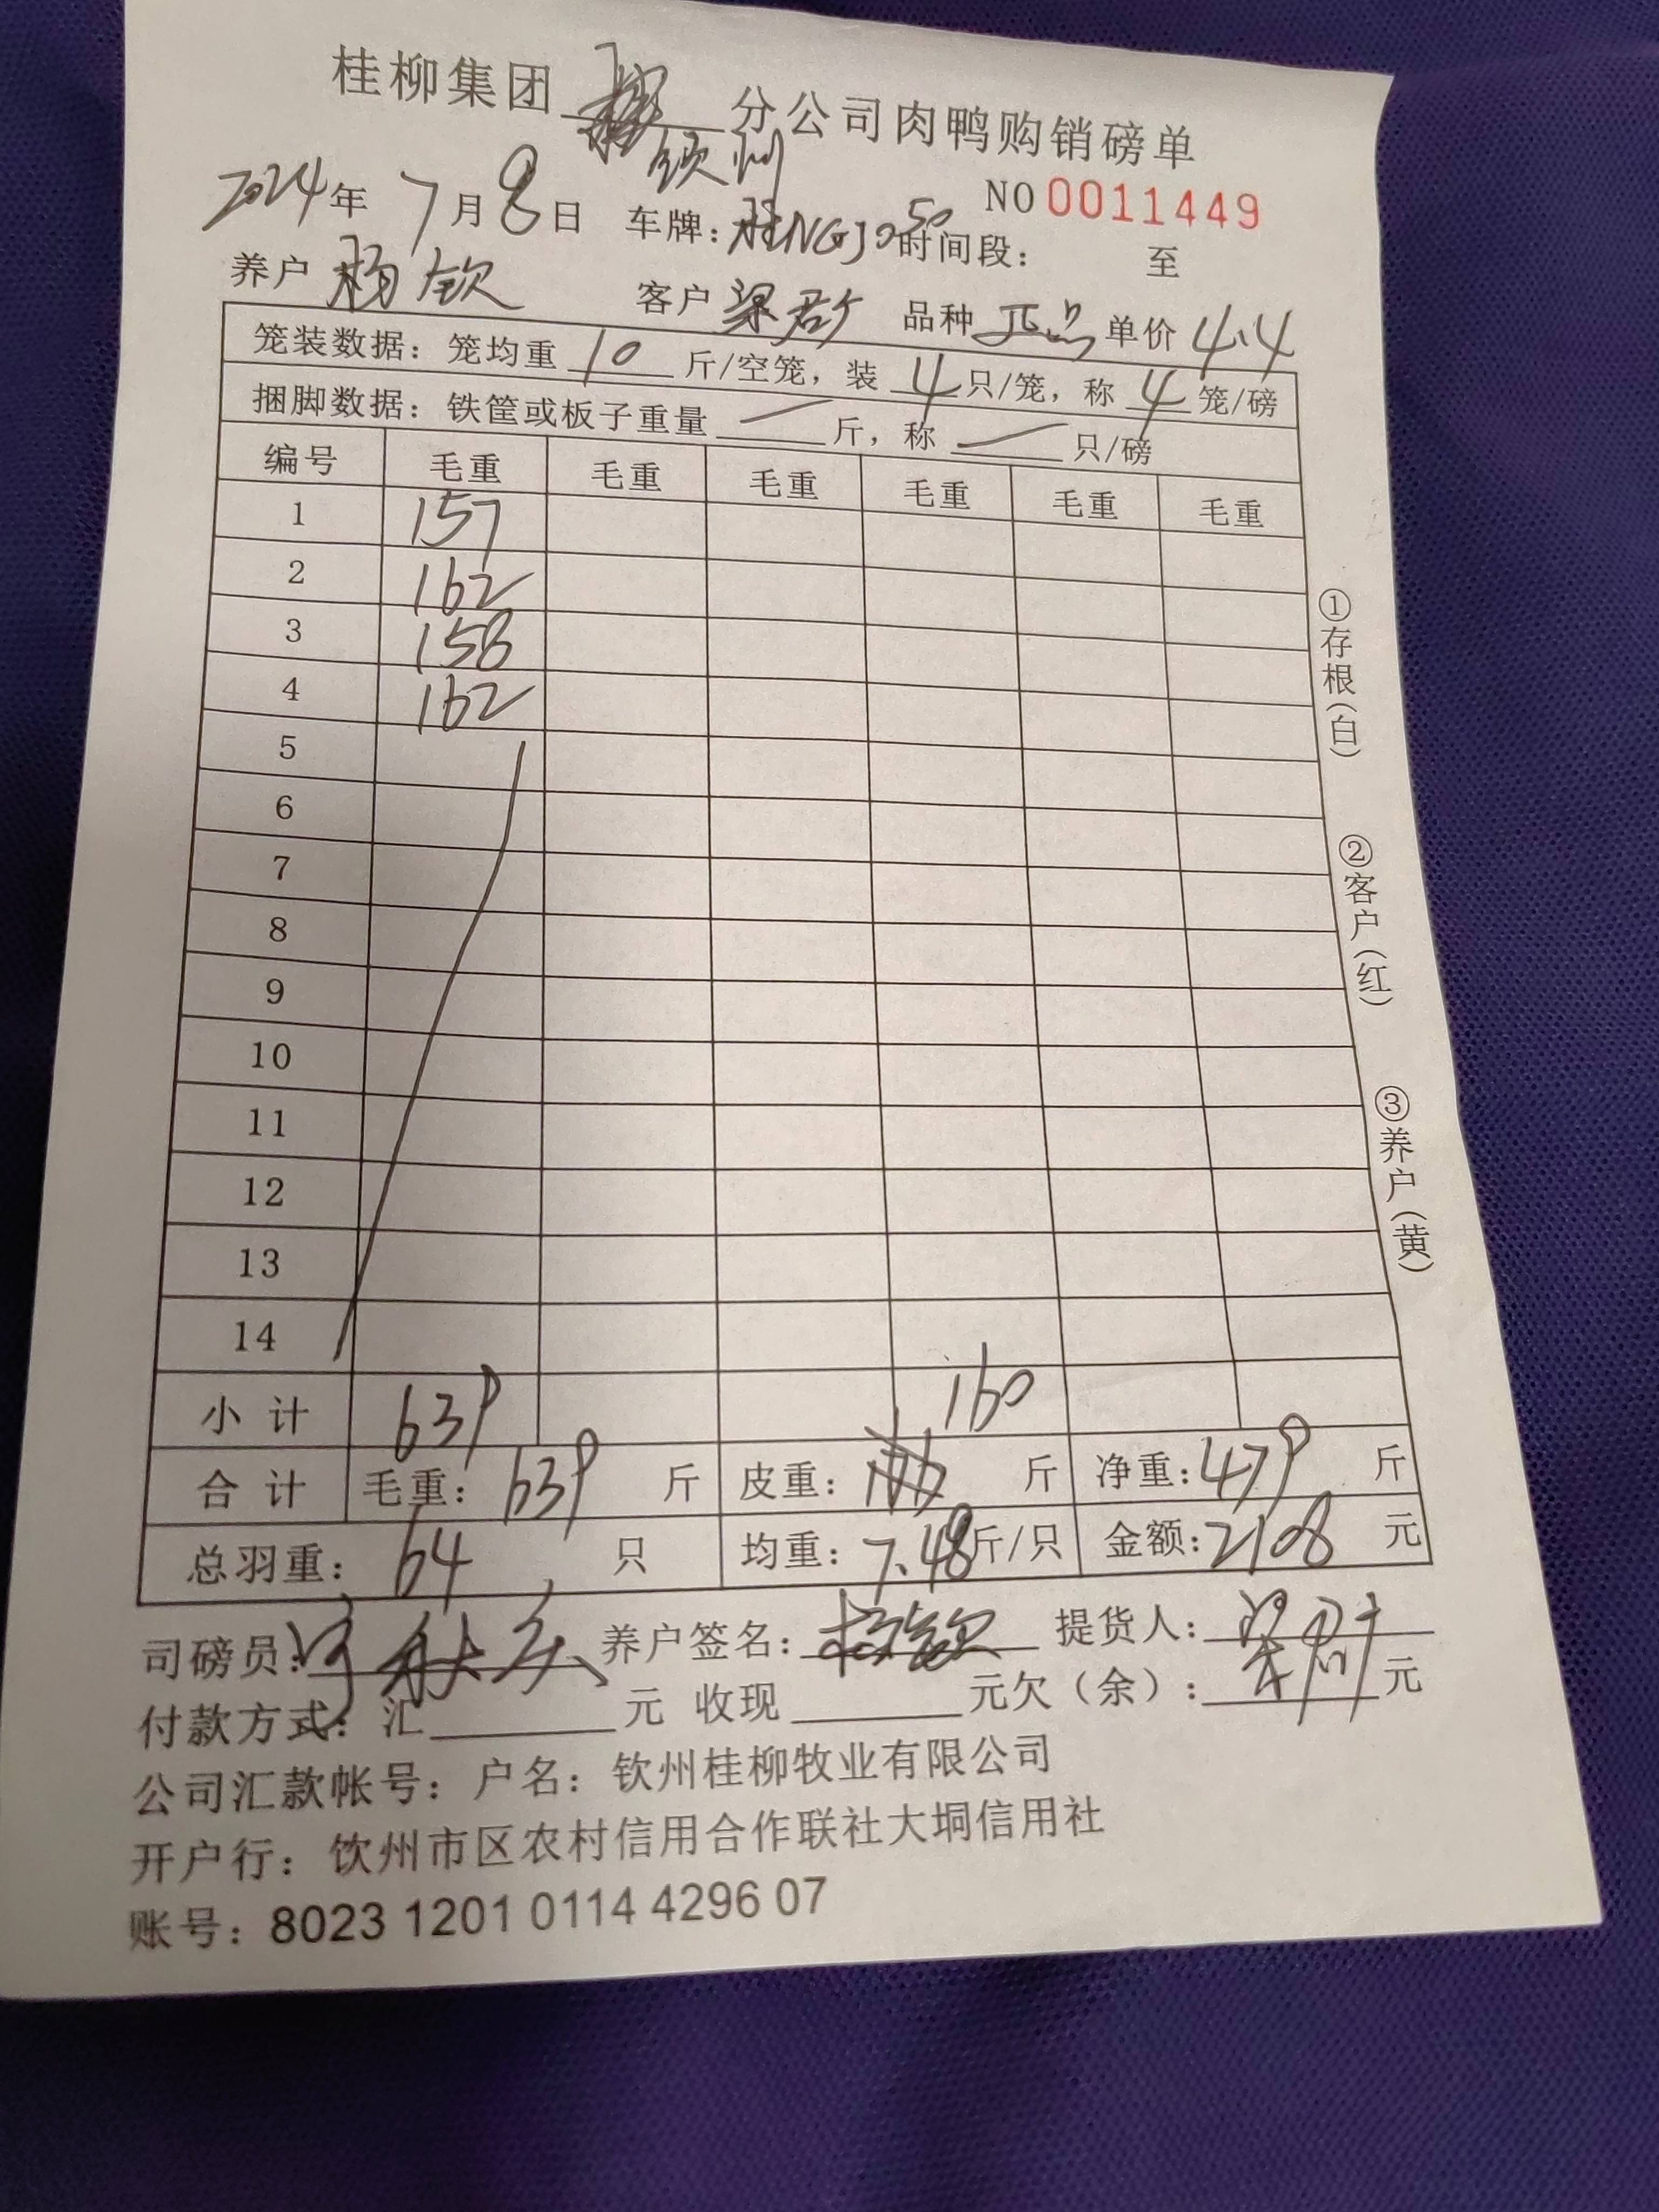 桂柳集团 分公司肉鸭购销磅单
钦州
NO 0011449
2024年 7月8日 车牌: 桂NGJ050 时间段: 至
养户 杨钦 客户 梁君 品种 正品 单价 4.4
笼装数据: 笼均重 10 斤/空笼, 装 4 只/笼, 称 4 笼/磅
捆脚数据: 铁筐或板子重量 — 斤, 称 — 只/磅
编号 毛重 毛重 毛重 毛重 毛重 毛重
1 157
2 162
3 158
4 162
5
6
7
8
9
10
11
12
13
14
小计 639 160
合计 毛重: 639 斤 皮重: 斤 净重: 479 斤
总羽重: 64 只 均重: 7.48 斤/只 金额: 2108 元
司磅员: 养户签名: 杨钦 提货人: 梁
付款方式: 汇 元 收现 元欠(余): 元
公司汇款帐号: 户名: 钦州桂柳牧业有限公司
开户行: 钦州市区农村信用合作联社大垌信用社
账号: 8023 1201 0114 4296 07
①存根(白)
②客户(红)
③养户(黄)